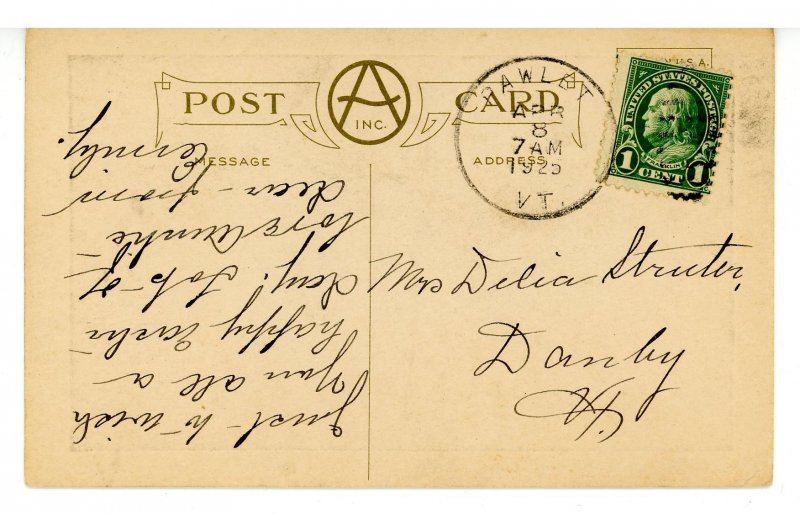 POST CARD
A
INC.
MESSAGE
ADDRESS
PAWLET
APR
8
7 AM
1925
VT.
UNITED STATES POSTAGE
FRANKLIN
1 CENT 1
Mrs Delia Struter,
Danby
Vt.
Just to wish
you all a
happy
day! of
love Auntie
dear - from
Emily.